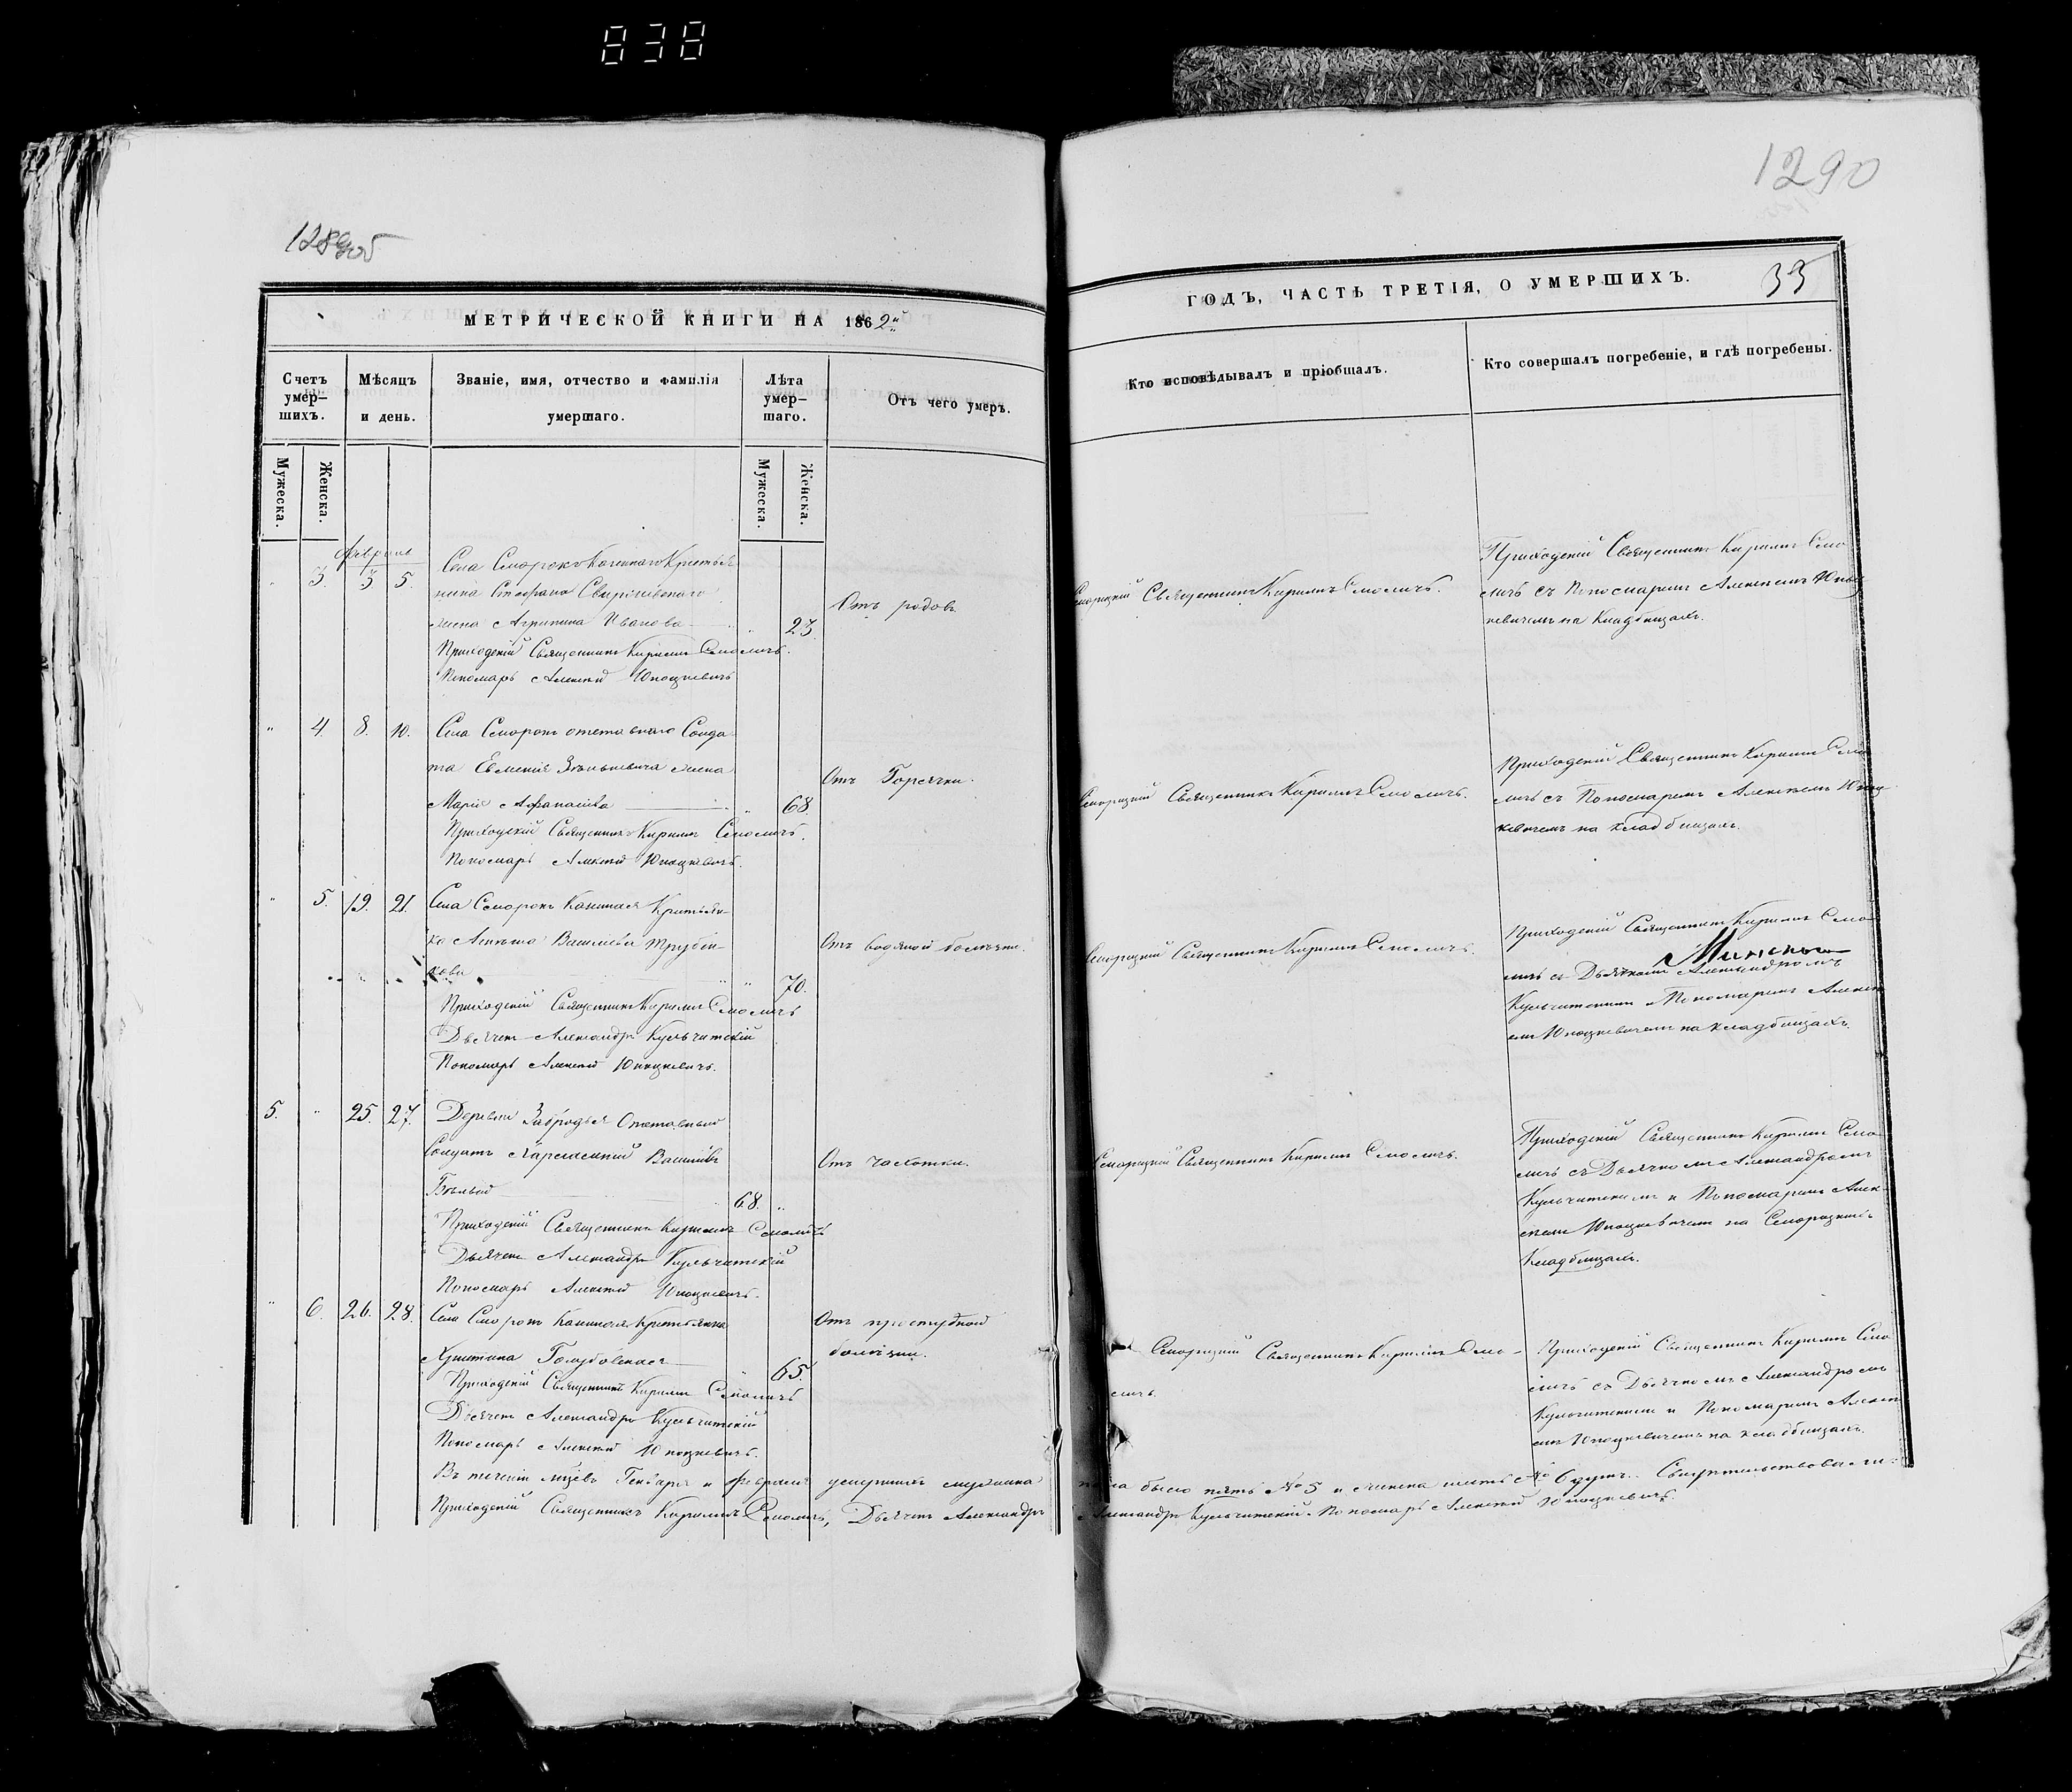 838
1290
1289об
МЕТРИЧЕСКОЙ КНИГИ НА 1862й
ГОДЪ, ЧАСТЬ ТРЕТІЯ, О УМЕРШИХЪ. 33
Счетъ умер-шихъ.
Мѣсяцъ и день.
Званіе, имя, отчество и фамилія умершаго.
Лѣта умер-шаго.
Отъ чего умеръ.
Кто исповѣдывалъ и пріобщалъ.
Кто совершалъ погребеніе, и гдѣ погребены.
Мужеска.
Женска.
Мужеска.
Женска.
Февраль
" 3 3 5.
Села Сморокъ Казеннаго Крестья
нина Стефана
жена Агрипина Иванова " 23.
Приходскій Священникъ Кириллъ Смоличъ.
Пономарь Алексій Юноцкевичъ
Отъ родовъ
Сморцкій Священникъ Кириллъ Смоличъ.
Приходскій Священникъ Кириллъ Смо
личъ съ Пономаремъ Алексѣемъ Юноц
кевичемъ на Кладбищахъ.
" 4. 8. 10.
Села Сморокъ отставнаго Солда
та Евменія Зѣнькевича жена
Марія Афанасіева " 68.
Приходскій Священникъ Кириллъ Смоличъ.
Пономарь Алексій Юноцкевичъ.
Отъ Горячки.
Сморцкій Священникъ Кириллъ Смоличъ.
Приходскій Священникъ Кириллъ Смо
личъ съ Пономаремъ Алексѣемъ Юноц
кевичемъ на кладбищахъ.
" 5. 19. 21.
Села Сморокъ Казенная Крестьян-
ка Васильева Труби-
кова " 70.
Приходскій Священникъ Кириллъ Смоличъ
Дьячекъ Александръ Кульчитскій
Пономарь Алексій Юноцкевичъ.
Отъ водяной болѣзни.
Сморцкій Священникъ Кириллъ Смоличъ.
Приходскій Священникъ Кириллъ Смо
личъ съ Дьячкомъ Александромъ
Кульчитскимъ и Пономаремъ Алексѣ
емъ Юноцкевичемъ на кладбищахъ.
5. " 25. 27.
Деревни Забродья Отставный
Солдатъ Васильевъ
Бѣлый 68. "
Приходскій Священникъ Кириллъ Смоличъ
Дьячекъ Александръ Кульчитскій
Пономарь Алексій Юноцкевичъ.
Отъ чахотки.
Сморцкій Священникъ Кириллъ Смоличъ.
Приходскій Священникъ Кириллъ Смо
личъ съ Дьячкомъ Александромъ
Кульчитскимъ и Пономаремъ Алек-
сѣемъ Юноцкевичемъ на Сморцкихъ
Кладбищахъ.
" 6. 26. 28.
Села Сморокъ Казенная Крестьянка
Христина Голубовская " 65.
Приходскій Священникъ Кириллъ Смоличъ
Дьячекъ Александръ Кульчитскій
Пономарь Алексій Юноцкевичъ.
Отъ простудной
болѣзни.
Сморцкій Священникъ Кириллъ Смо-
личъ.
Приходскій Священникъ Кириллъ Смо
личъ съ Дьячкомъ Александромъ
Кульчитскимъ и Пономаремъ Алексѣ
емъ Юноцкевичемъ на кладбищахъ.
Въ теченіи мѣсяцевъ Генваря и Февраля умершихъ мужеска пола было пять №5 и женска шесть №6 душъ. Свидѣтельствовали:
Приходскій Священникъ Кириллъ Смоличъ, Дьячекъ Александръ Кульчитскій Пономарь Алексій Юноцкевичъ.